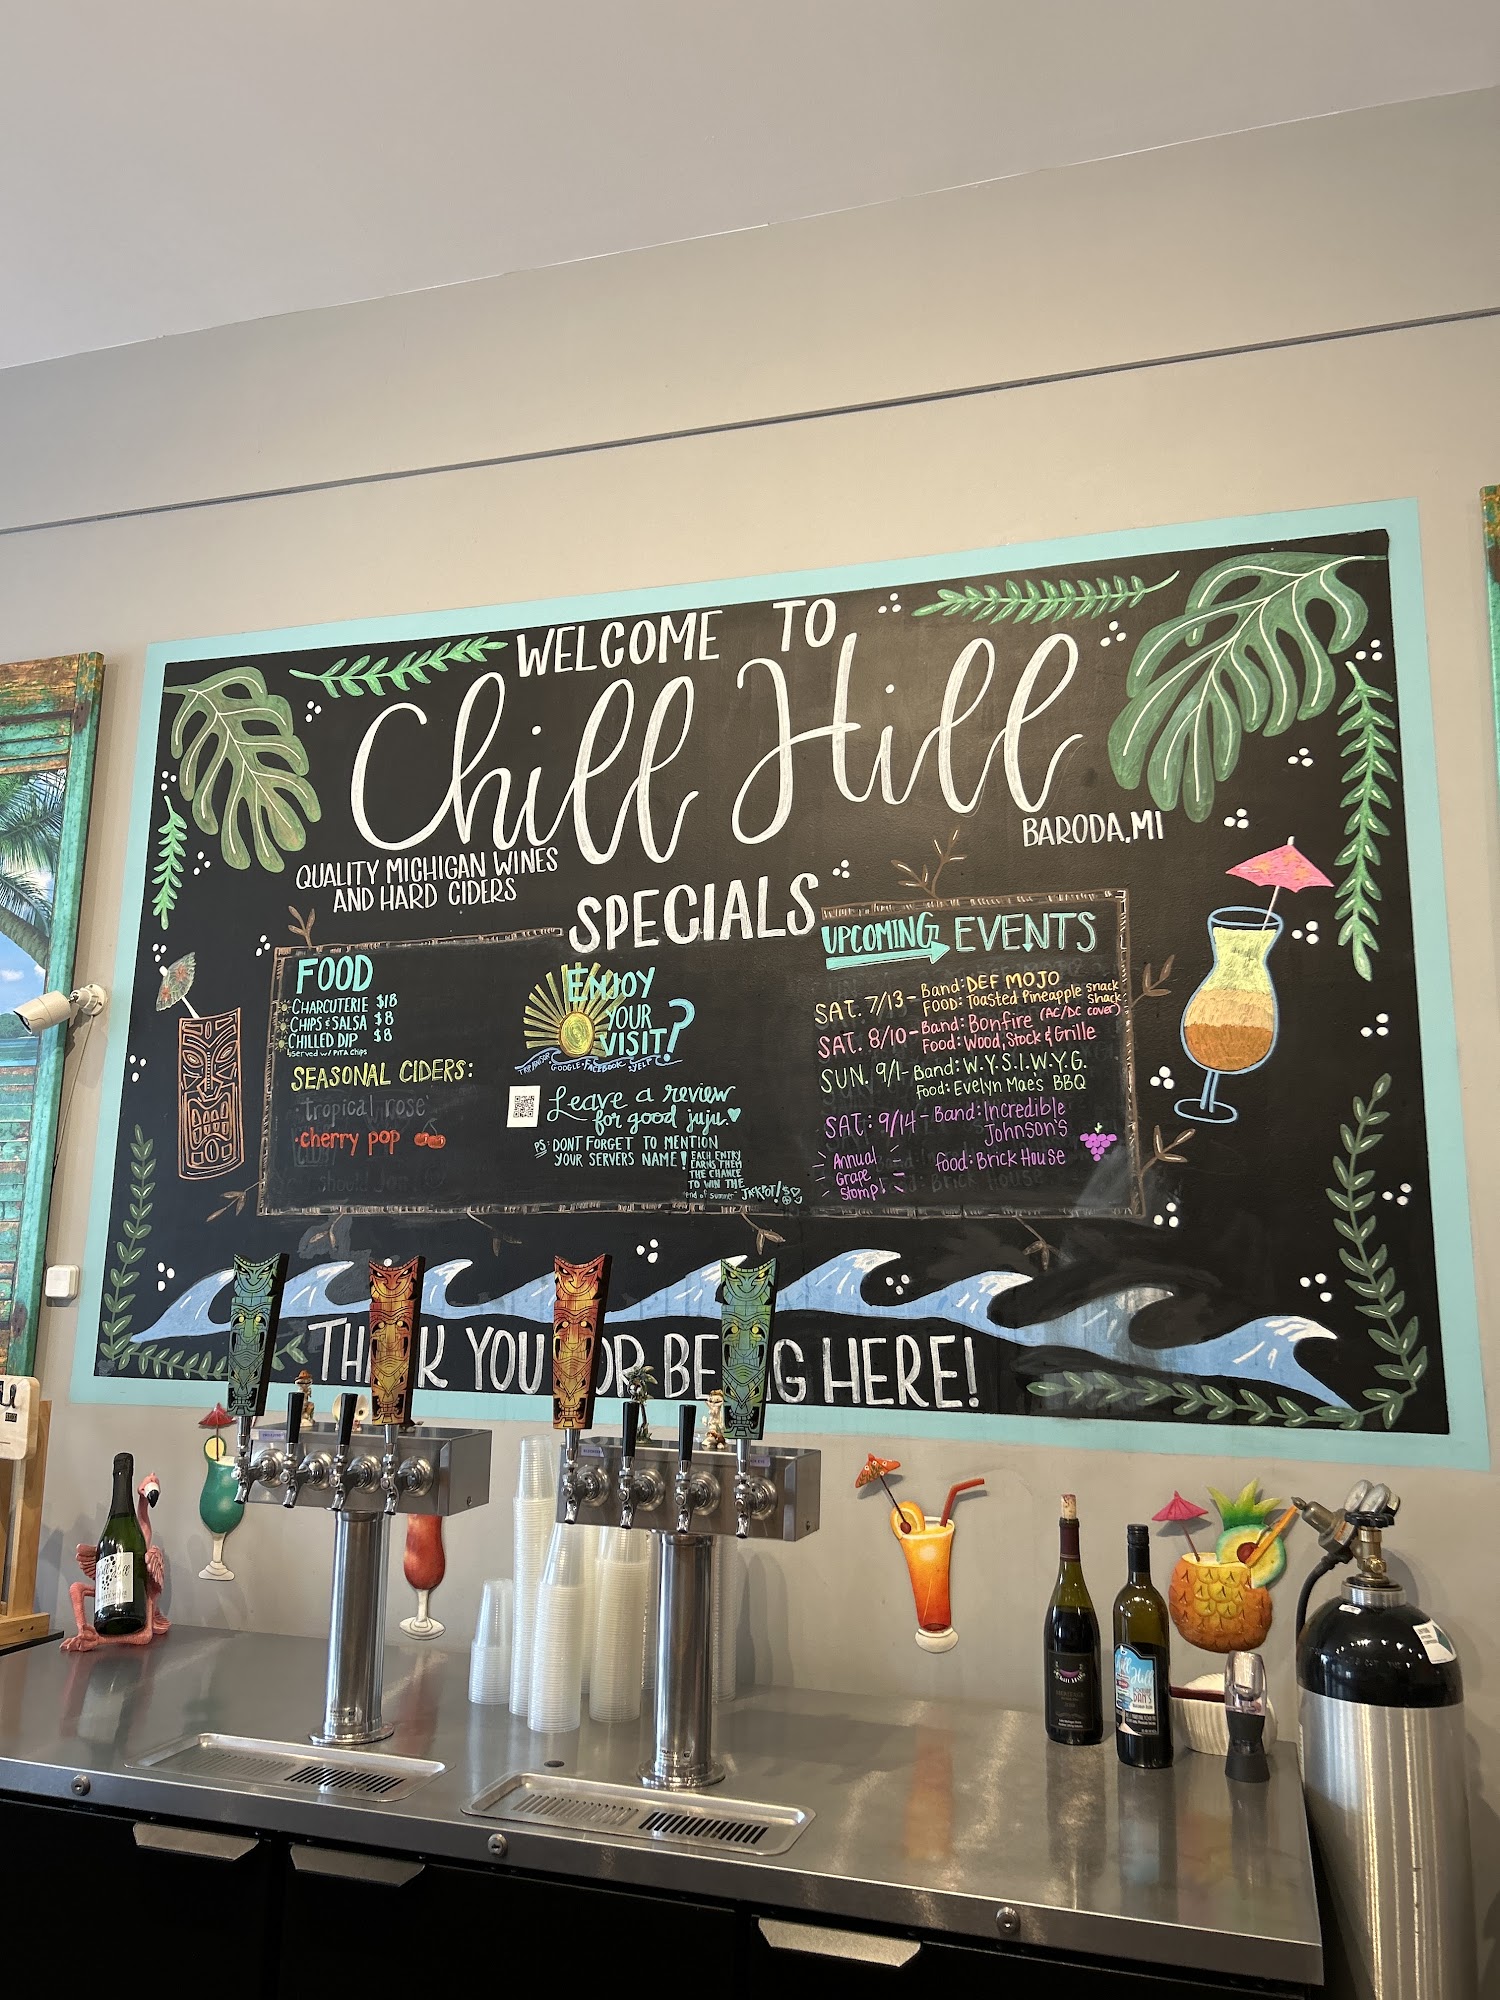 WELCOME TO
Chill Hill
BARODA, MI
QUALITY MICHIGAN WINES
AND HARD CIDERS
SPECIALS
FOOD
CHARCUTERIE $18
CHIPS & SALSA $8
CHILLED DIP $8
served w/ PITA chips
SEASONAL CIDERS:
·tropical rose
·cherry pop
ENJOY
YOUR
VISIT?
TRIP ADVISOR · GOOGLE · FACEBOOK · YELP
Leave a review
for good juju.
PS: DONT FORGET TO MENTION
YOUR SERVERS NAME!
EACH ENTRY
EARNS THEM
THE CHANCE
TO WIN THE
"end of summer" JACKPOT!
UPCOMING EVENTS
SAT. 7/13 - Band: DEF MOJO
FOOD: Toasted Pineapple snack shack
SAT. 8/10 - Band: Bonfire (AC/DC cover)
Food: Wood, Stock & Grille
SUN. 9/1 - Band: W.Y.S.I.W.Y.G.
food: Evelyn Mae's BBQ
SAT: 9/14 - Band: Incredible
Johnson's
food: Brick House
Annual
Grape
Stomp!
TH K YOU OR BE G HERE!
Chill Hill
DAN'S